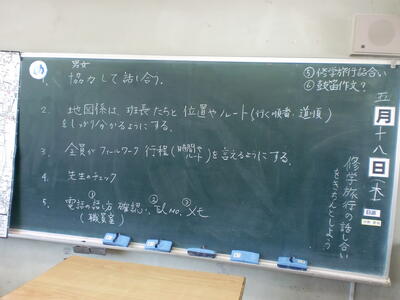 男女
1. 協力して話し合う。
2. 地図係は、班長たちと位置やルート(行く順番、道順)
をしっかり分かるようにする。
3. 全員がフィールワーク行程(時間やルート)を言えるようにする。
4. 先生のチェック
5. 電話の話し方①確認。②TEL NO. ③メモ
(職員室)
⑤修学旅行話合い
⑥鼓笛作文?
五月十八日(木)
修学旅行の話し合い
をきちんとしよう
日直